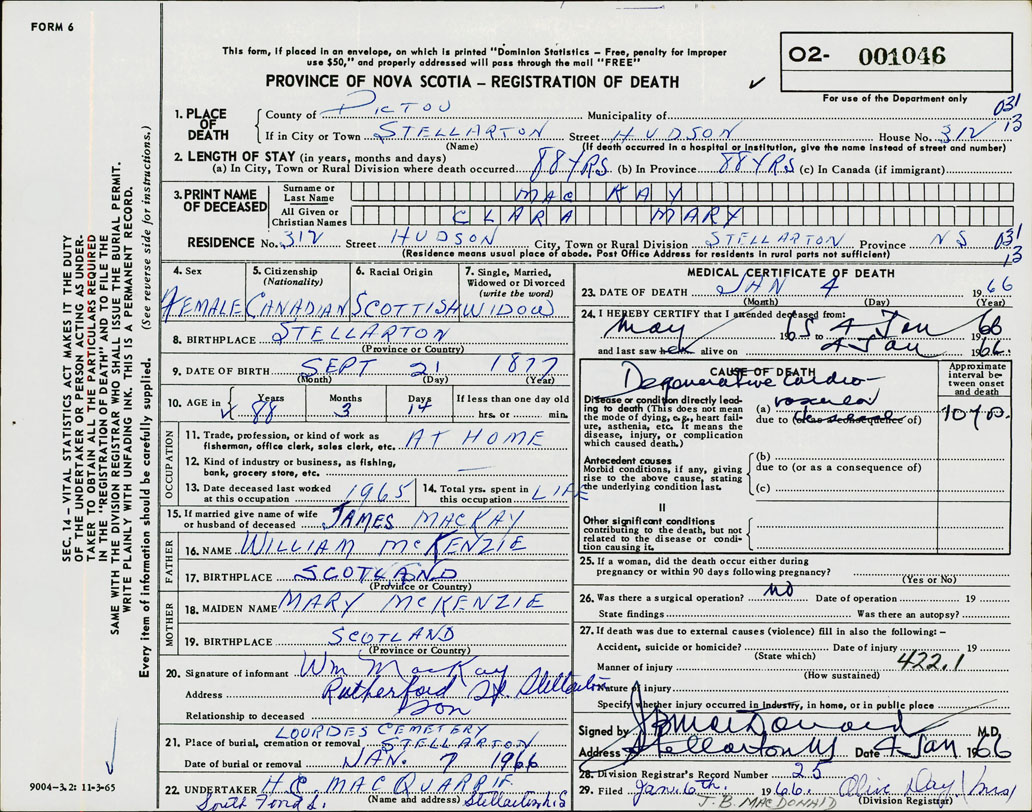 FORM 6
This form, if placed in an envelope, on which is printed "Dominion Statistics – Free, penalty for improper
use $50," and properly addressed will pass through the mail "FREE"
PROVINCE OF NOVA SCOTIA – REGISTRATION OF DEATH
02- 001046
For use of the Department only
031
13
1. PLACE OF DEATH
County of PICTOU Municipality of
If in City or Town STELLARTON Street HUDSON House No. 312
(Name) (If death occurred in a hospital or institution, give the name instead of street and number)
2. LENGTH OF STAY (in years, months and days)
(a) In City, Town or Rural Division where death occurred 88 YRS (b) In Province 88 YRS (c) In Canada (if immigrant)
3. PRINT NAME OF DECEASED
Surname or Last Name MAC KAY
All Given or Christian Names CLARA MARY
RESIDENCE No. 312 Street HUDSON City, Town or Rural Division STELLARTON Province NS 031
13
(Residence means usual place of abode. Post Office Address for residents in rural parts not sufficient)
4. Sex FEMALE
5. Citizenship (Nationality) CANADIAN
6. Racial Origin SCOTTISH
7. Single, Married, Widowed or Divorced (write the word) WIDOW
8. BIRTHPLACE STELLARTON
(Province or Country)
9. DATE OF BIRTH SEPT 21 1877
(Month) (Day) (Year)
10. AGE in Years 88 Months 3 Days 14 If less than one day old hrs. or min.
OCCUPATION
11. Trade, profession, or kind of work as
fisherman, office clerk, sales clerk, etc. AT HOME
12. Kind of industry or business, as fishing,
bank, grocery store, etc. —
13. Date deceased last worked
at this occupation 1965
14. Total yrs. spent in
this occupation LIFE
15. If married give name of wife
or husband of deceased JAMES MACKAY
FATHER
16. NAME WILLIAM McKENZIE
17. BIRTHPLACE SCOTLAND
(Province or Country)
MOTHER
18. MAIDEN NAME MARY McKENZIE
19. BIRTHPLACE SCOTLAND
(Province or Country)
20. Signature of informant Wm MacKay
Address Rutherford St. Stellarton
Relationship to deceased Son
21. Place of burial, cremation or removal LOURDES CEMETERY STELLARTON
Date of burial or removal JAN. 7 1966
22. UNDERTAKER H.C. MACQUARRIE
(Name and address)
South Foord St. Stellarton N.S
MEDICAL CERTIFICATE OF DEATH
23. DATE OF DEATH JAN 4 1966
(Month) (Day) (Year)
24. I HEREBY CERTIFY that I attended deceased from:
May 1965 4 Jan 1966
and last saw her alive on 4 Jan 1966.
CAUSE OF DEATH
Approximate interval between onset and death
Disease or condition directly leading to death (This does not mean the mode of dying, e.g., heart failure, asthenia, etc. It means the disease, injury, or complication which caused death.)
Degenerative cardio-
(a) vascular
due to (or as a consequence of)
disease
10 yrs.
Antecedent causes
Morbid conditions, if any, giving rise to the above cause, stating the underlying condition last.
(b)
due to (or as a consequence of)
(c)
II
Other significant conditions
contributing to the death, but not related to the disease or condition causing it.
25. If a woman, did the death occur either during
pregnancy or within 90 days following pregnancy?
(Yes or No)
26. Was there a surgical operation? no Date of operation 19
State findings Was there an autopsy?
27. If death was due to external causes (violence) fill in also the following: –
Accident, suicide or homicide? Date of injury 19
(State which)
Manner of injury 422.1
(How sustained)
Nature of injury
Specify whether injury occurred in industry, in home, or in public place
Signed by JB MacDonald M.D.
Address Stellarton NS Date 4 Jan 1966
28. Division Registrar's Record Number 25
29. Filed Jan. 6th. 1966. Olive Day (Mrs)
J.B. MACDONALD (Division Registrar)
SEC. 14 – VITAL STATISTICS ACT MAKES IT THE DUTY
OF THE UNDERTAKER OR PERSON ACTING AS UNDER-
TAKER TO OBTAIN ALL THE PARTICULARS REQUIRED
IN THE "REGISTRATION OF DEATH" AND TO FILE THE
SAME WITH THE DIVISION REGISTRAR WHO SHALL ISSUE THE BURIAL PERMIT.
WRITE PLAINLY WITH UNFADING INK. THIS IS A PERMANENT RECORD.
Every item of information should be carefully supplied. (See reverse side for instructions.)
9004-3.2: 11-3-65